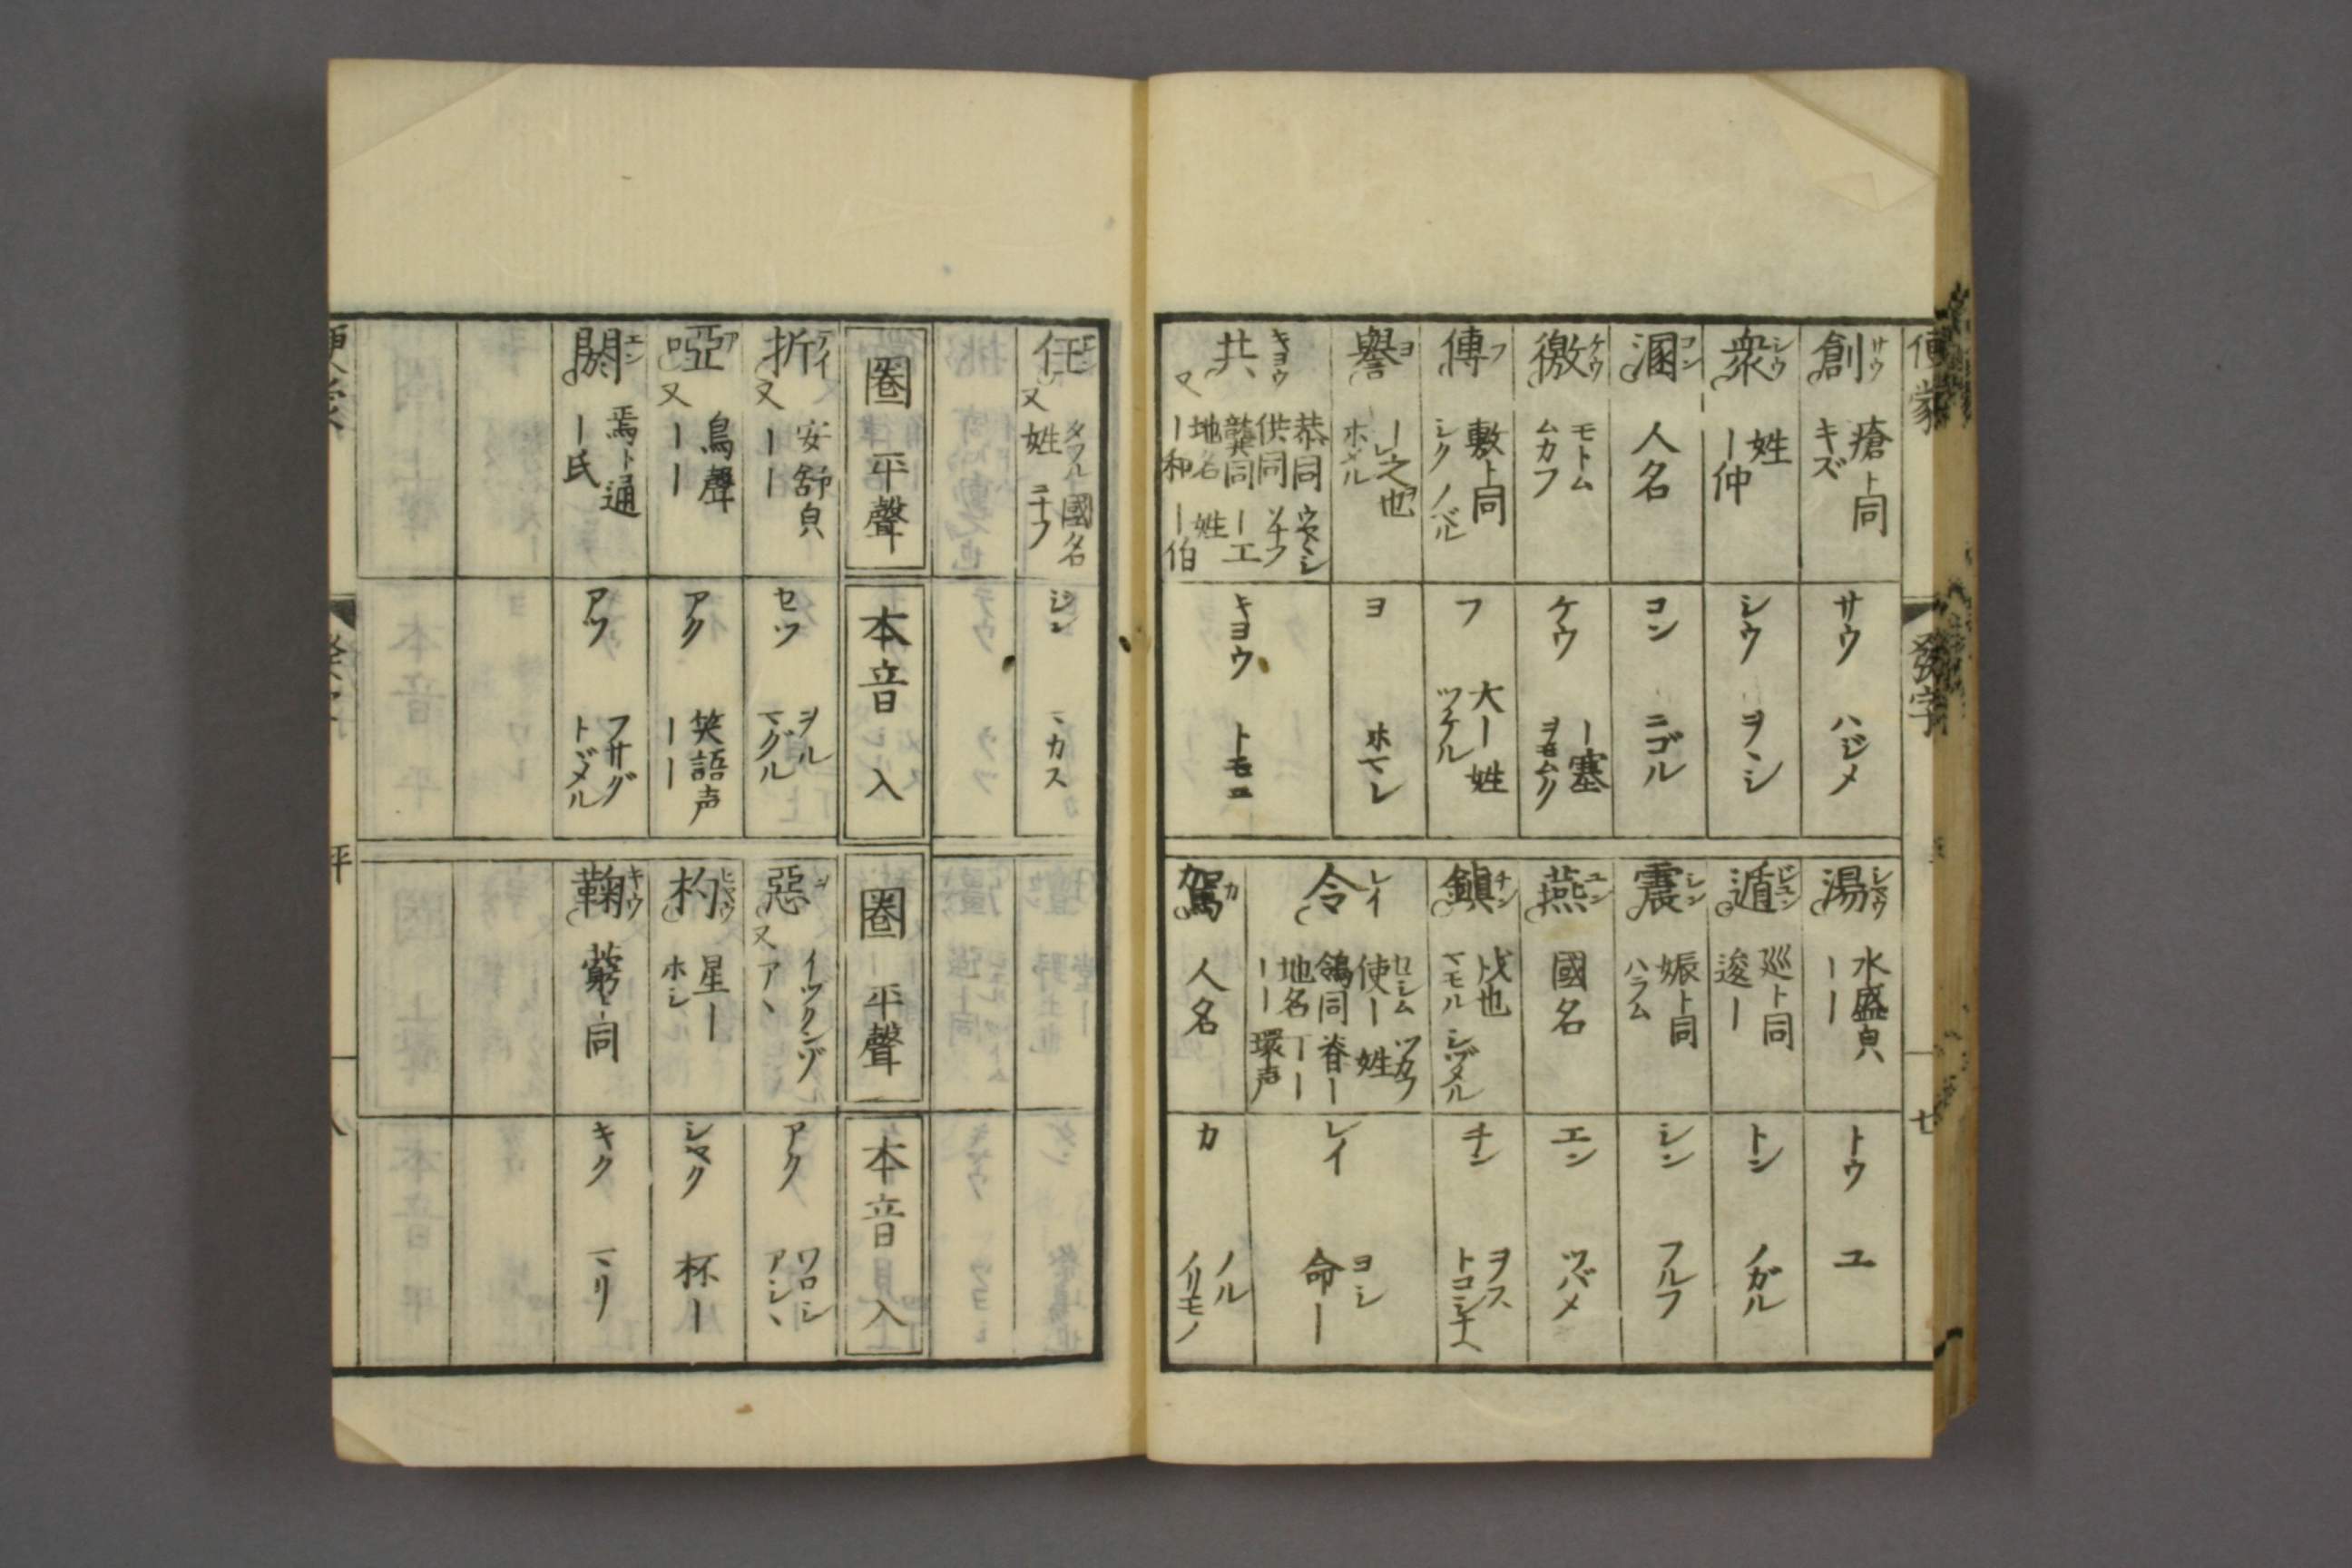 發字
創 サウ 瘡ト同 キズ
サウ ハジメ
衆 シウ 姓 ー仲
シウ ヲヽシ
溷 コン 人名
コン ニゴル
徼 ケウ モトム ムカフ
ケウ ー塞
傅 フ 敷ト同 シク ノベル
フ 大ー 姓 ツケル
譽 ヨ ホメル
ヨ ホマレ
共 キヨウ 又 恭同 ウヤ〳〵シ 供同 ソナフ 龔同 ー工 地名 姓 ー和 ー伯
キヨウ トモニ
湯 シヤウ 水盛皃 ーー
トウ ユ
遁 ジユン 巡ト同 逡ー
トン ノガル
震 シン 娠ト同 ハラム
シン フルフ
燕 エン 國名
エン ツバメ
鎮 チン 戍也 マモル シヅメル
チン ヲス トコシナヘ
令 レイ セシム ツカフ 使ー 姓 鴒同 脊ー 地名 ーー ーー 環声
レイ ヨシ 命ー
駕 カ 人名
カ ノル ノリモノ
任 又 タフル 國名 姓 ニナフ
ジン マカス
圏 平聲
本音 入
折 テイ 又 安舒皃 ーー
セツ ヲル マグル
啞 ア 又 鳥聲 ーー
アク 笑語声 ーー
閼 エン 焉ト通 ー氏
アツ フサグ トヾメル
圏 平聲
本音 入
惡 ヲ 又 イヅクンゾ アヽ
アク ワロシ アシヽ
杓 ヒヤウ 星ー ホシ
シヤク 杯ー
鞠 キウ 藭ト同
キク マリ